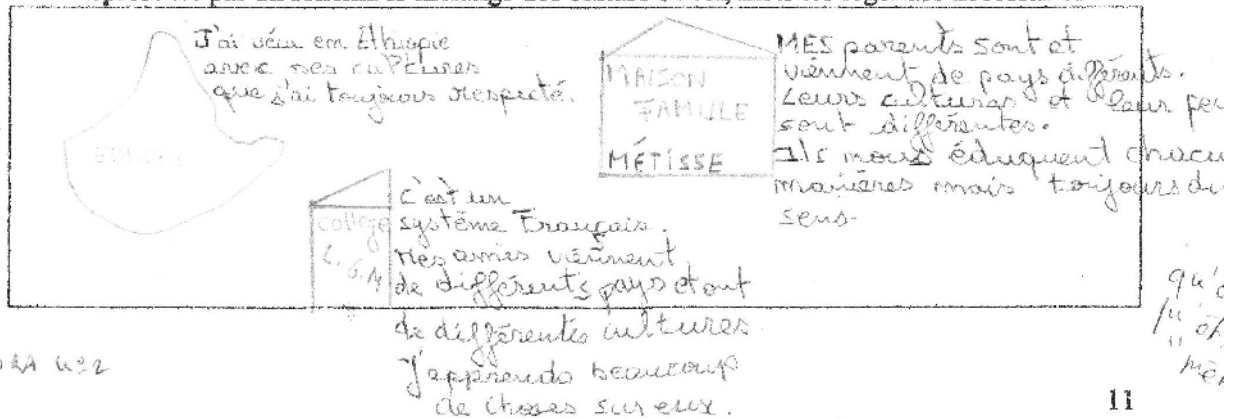 J'ai vécu en Éthiopie
avec ses cultures
que j'ai toujours respecté.
ETHIOPIE
MAISON
FAMILLE
MÉTISSE
MES parents sont et
viennent de pays différents.
Leurs cultures et leur
sont différentes.
Ils nous éduquent
manières mais toujours
sens.
collège
L.G.M
C'est un
système Français.
Mes amies viennent
de différents pays et ont
de différentes cultures
J'apprends beaucoup
de choses sur eux.
11